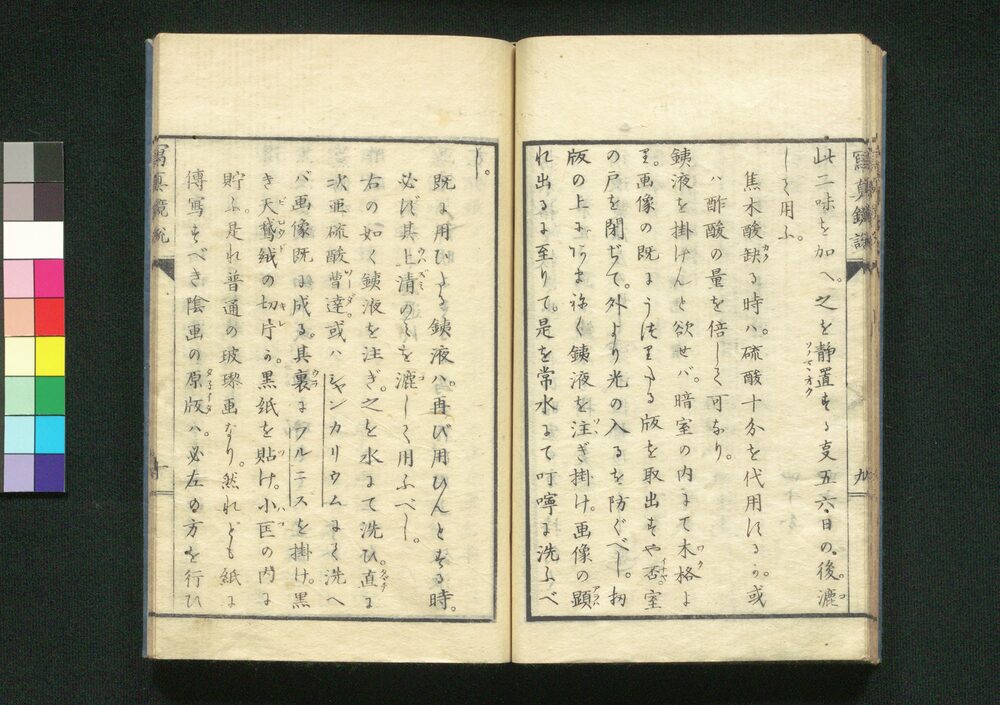 寫真鏡説
九
此二味を加へ。之を静置する叓五六日の後。漉
して用ふ。
焦木酸缺る時ハ。硫酸十分を代用するか。或
ハ酢酸の量を倍して可なり。
銕液を掛けんと欲せバ。暗室の内にて木格よ
り。画像の既にうつりたる版を取出すや否。室
の戸を閉ぢて。外より光の入るを防ぐべし。扨
版の上にあまねく銕液を注ぎ掛け。画像の顕
れ出るに至りて。是を常水にて叮嚀に洗ふべ
し。
既に用ひたる銕液ハ。再び用ひんとする時。
必ず其上清のみを漉して用ふべし。
右の如く銕液を注ぎ。之を水にて洗ひ。直に
次亜硫酸曹達。或ハシヤンカリウムにて洗へ
バ画像既に成る。其裏にフルニスを掛け。黒
き天鵞絨の切片か。黒紙を貼け。小匡の内に
貯ふ。是れ普通の玻瓈画なり。然れども紙に
傳寫すべき陰画の原版ハ。必左の方を行ひ
寫真鏡説
十